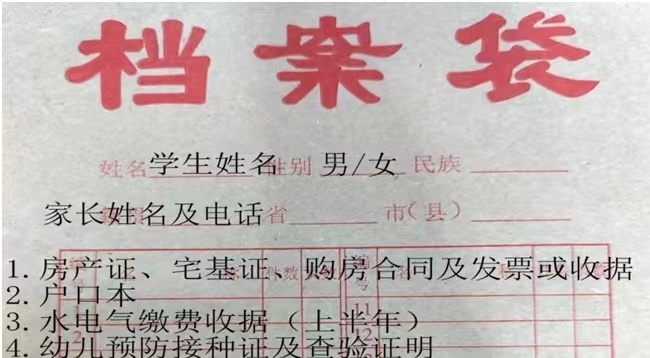 档案袋
姓名 学生姓名 性别 男/女 民族
家长姓名及电话 省 市(县)
1. 房产证、宅基证、购房合同及发票或收据
件数
号
11
2. 户口本
3. 水电气缴费收据（上半年）
2
12
4. 幼儿预防接种证及查验证明